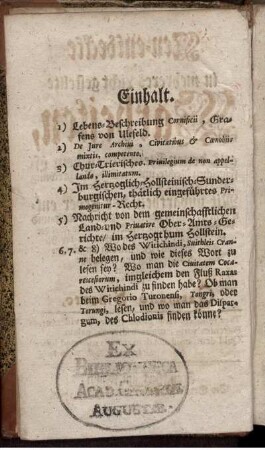 Einhalt.
1) Lebens-Beschreibung Cornificii, Gra-
fens von Ulefeld.
2) De Jure Archivi, Civitatibus & Cœnobiis
mixtis, competente.
3) Chur-Trierisches Privilegium de non appel-
lando, illimitatum.
4) Im Herzoglich-Hollsteinisch-Sunder-
burgischen, thätlich eingeführtes Pri-
mogenitur-Recht.
5) Nachricht von dem gemeinschaftlichen
Land- und Privative Ober-Amts-Ge-
richte/ im Herzogthum Hollstein.
6. 7. & 8) Wo des Witichindi, Suithleis Cran-
ne belegen, und wie dieses Wort zu
lesen sey? Wo man die Civitatem Coca-
rescemiorum, imgleichem den Fluß Raxas
des Witichindi zu finden habe? Ob man
beym Gregorio Turonensi, Tongri, oder
Toringi, lesen, und wo man das Dispar-
gum, des Chlodionis finden könne?
EX
BIBLIOTHECA
ACADEMIAE
AUGUSTAE.